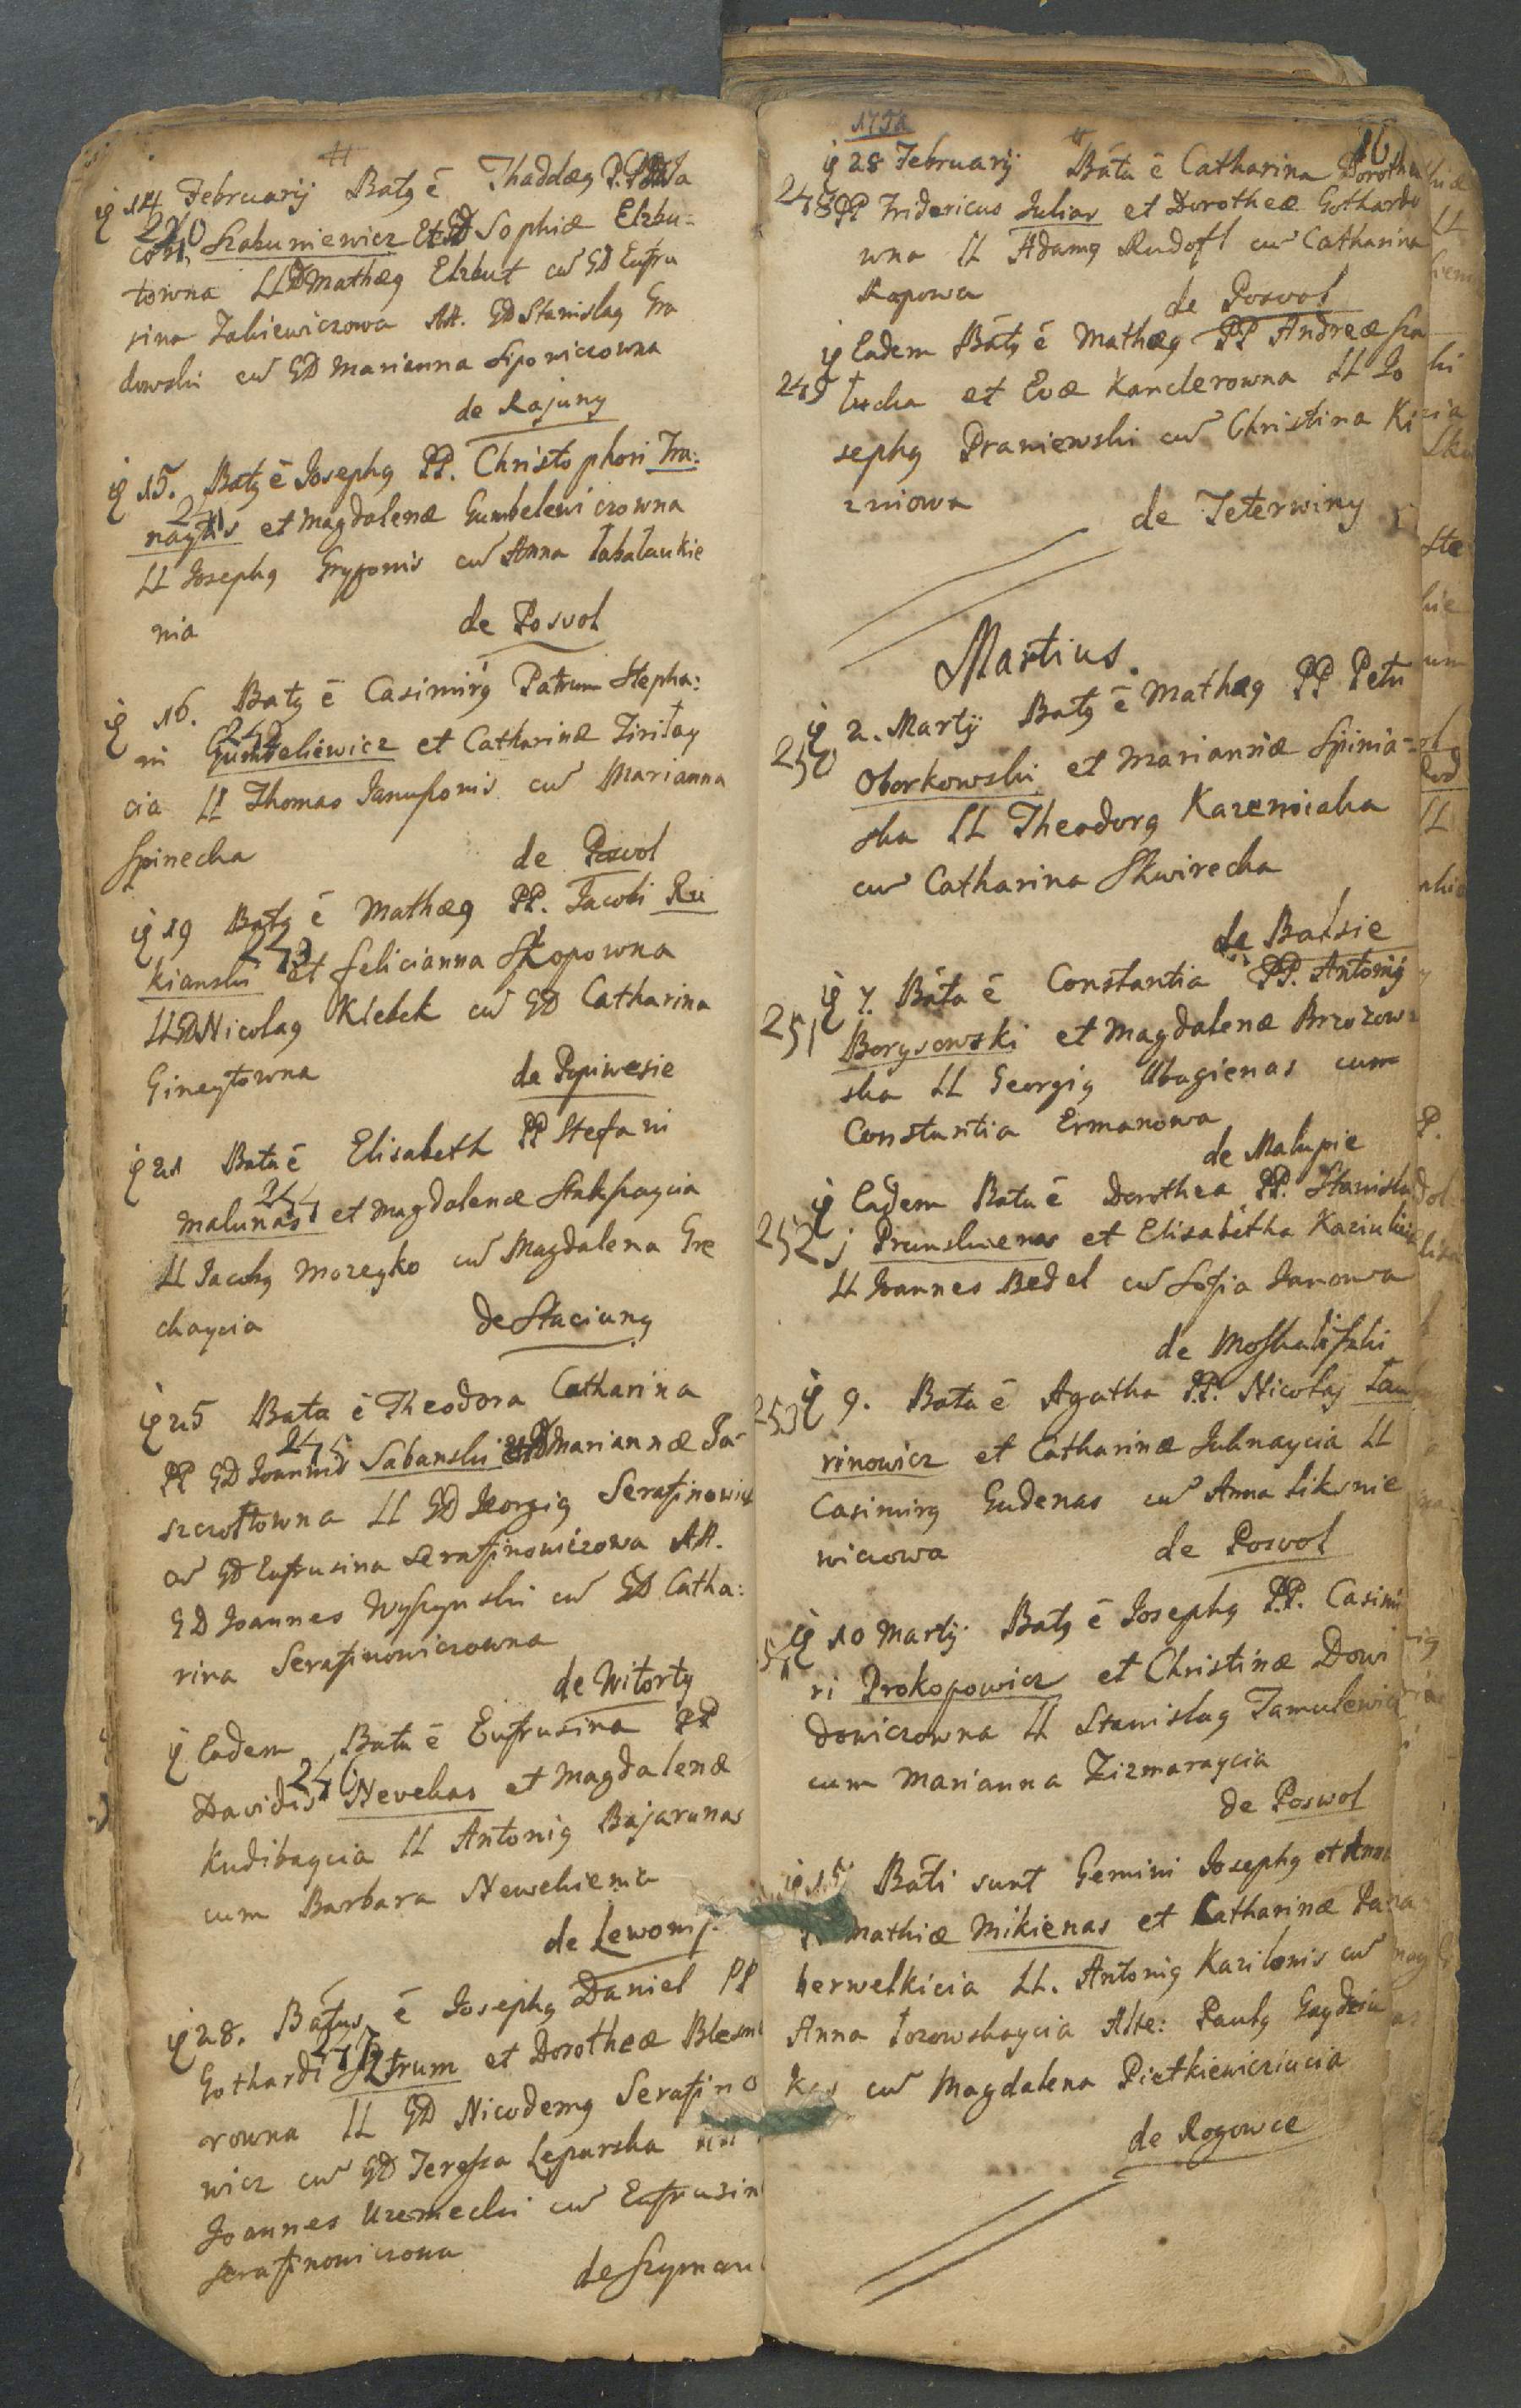 14 Februarij Batg ē Thaddæg P.P.
240
Szabuniewicz Et GD Sophiæ Elzbu-
towna LL GD Mathæg Elzbut cu GD Eufru
sina Zakiewiczowa Ast. GD Stanislag Gra
dowski cu GD Marianna Siponiczowna
de Rajung
15. Batg ē Josephg PP. Christophori Tra:
241
naytis et Magdalenæ Gumbelewiczowna
LL Josephg Gryzonis cu Anna Labałaukie
nia de Posvol
16. Batg ē Casimirg Patrum Stepha:
242
ni Gumbeliewicz et Catharinæ Zirilay
cia LL Thomas Janusonis cu Marianna
Spinecka de Posvol
19 Batg ē Mathæg PP. Jacobi Ru
243
kianski et felicianna Skopowna
LL GD Nicolag Klebek cu GD Catharina
Gineytowna de Popiwesie
21 Bata ē Elisabeth PP Stefani
244
malunas et Magdalenæ Stakszaycia
LL Jacobg Mozeyko cu Magdalena Gre
chaycia de Staciung
25 Bata ē Theodora Catharina
245
PP GD Joannis Sabanski et GD Mariannæ Ja-
szczołtowna LL GD Georgig Serafinowicz
cu GD Eufrusina Serafinowiczowa Ast.
GD Joannes Wyszynski cu GD Catha:
rina Serafinowiczowna
de Witorty
Eadem Bata ē Eufrusina PP
246
Davidis Nevekas et Magdalenæ
Kudibaycia LL Antonig Bajarunas
cum Barbara Newekienia
de Lewoni
28. Batus ē Josephg Daniel PP
247
Gothardi Sztrum et Dorotheæ Blesm
rowna LL GD Nicodemg Serafino
wicz cu GD Teressa Lepurska
Joannes Uzemecki cu Eufrusin
Serafinowiczowa
de Szyman
1752
161
28 Februarij Bata ē Catharina Dorothea
248 PP Fridericus Julias et Dorotheæ Gothardo
wna LL Adamg Rudoft cu Catharina
Rapowa de Posvol
Eadem Batg ē Mathæg PP Andreæ Sza
249 łucha et Evæ Kanclerowna LL Jo
sephg Praniewski cu Christina Ki
zniowa de Teterwiny
Martius.
2. Martij Batg ē Mathæg PP Petri
250
Oborkowski et Mariannæ Spinia-
ska LL Theodorg Kazemiaka
cu Catharina Skwirecka
de Balsie
7. Bata ē Constantia PP. Antonij
251
Borysowski et Magdalenæ Brzozow:
ska LL Georgig Ubagienas cum
Constantia Ermanowa
de Malupie
Eadem Bata ē Dorothea PP. Stanisla
252 j Prunskienas et Elisabetha Kaziukic
LL Joannes Bedel cu Sofia Janowa
de Moskaliszki
253 9. Bata ē Agatha PP. Nicolaj Łau
rinowicz et Catharinæ Juknaycia LL
Casimirg Gudenas cu Anna Liksnie
wiczowa de Posvol
10 Martij Batg ē Josephg PP. Casimi
ri Prokopowicz et Christinæ Dowi
dowiczowna LL Stanislag Tamulewicz
cum Marianna Zizmaraycia
de Poswol
15 Bati sunt Gemini Josephg et Anna
Mathiæ Mikienas et Catharinæ Ja
berwelkicia LL. Antonig Kazilonis cu
Anna Łozowskaycia Aste: Paulg Gaydziu
kas cu Magdalena Pietkiewicziucia
de Rogowce